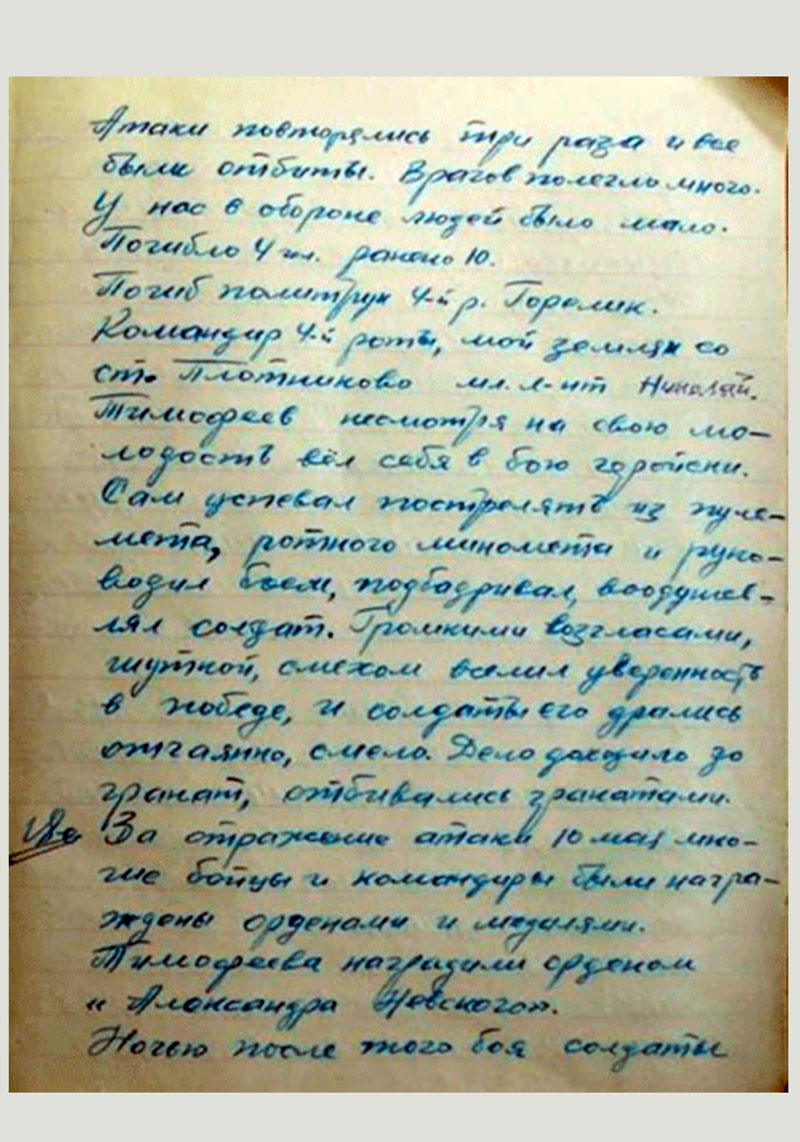 Атаки повторялись три раза и все
были отбиты. Врагов полегло много.
У нас в обороне людей было мало.
Погибло 4 чел. ранено 10.
Погиб политрук 4-й р. Горелик.
Командир 4-й роты, мой земляк со
ст. Плотниково мл. л-нт Николай.
Тимофеев несмотря на свою мо-
лодость вёл себя в бою геройски.
Сам успевал пострелять из пуле-
мета, ротного миномета и руко-
водил боем, подбадривал, воодушев-
лял солдат. Громкими возгласами,
шуткой, смехом вселил уверенность
в победе, и солдаты его дрались
отчаянно, смело. Дело доходило до
гранат, отбивались гранатами.
За отражение атаки 10 мая мно-
гие бойцы и командиры были награ-
ждены орденами и медалями.
Тимофеева наградили орденом
"Александра Невского".
Ночью после этого боя солдаты